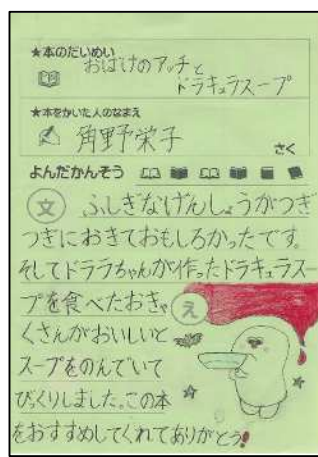 ★本のだいめい
おばけのアッチと
ドラキュラスープ
★本をかいた人のなまえ
角野栄子
さく
よんだかんそう
文 ふしぎなげんしょうがつぎ
つぎにおきておもしろかったです。
そしてドララちゃんが作ったドラキュラスー
プを食べたおきゃ
え
くさんがおいしいと
スープをのんでいて
びっくりしました。この本
をおすすめしてくれてありがとう!